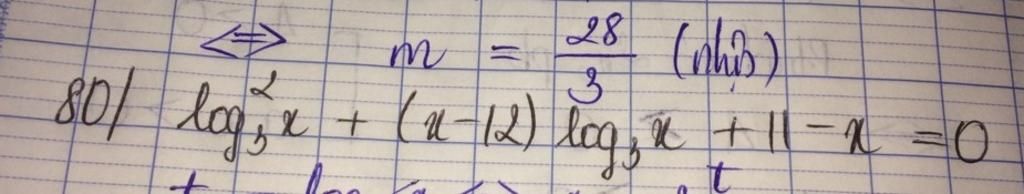 ⇔ m = 28/3 (nhận)
80/ log₃²x + (x-12) log₃x + 11 - x = 0